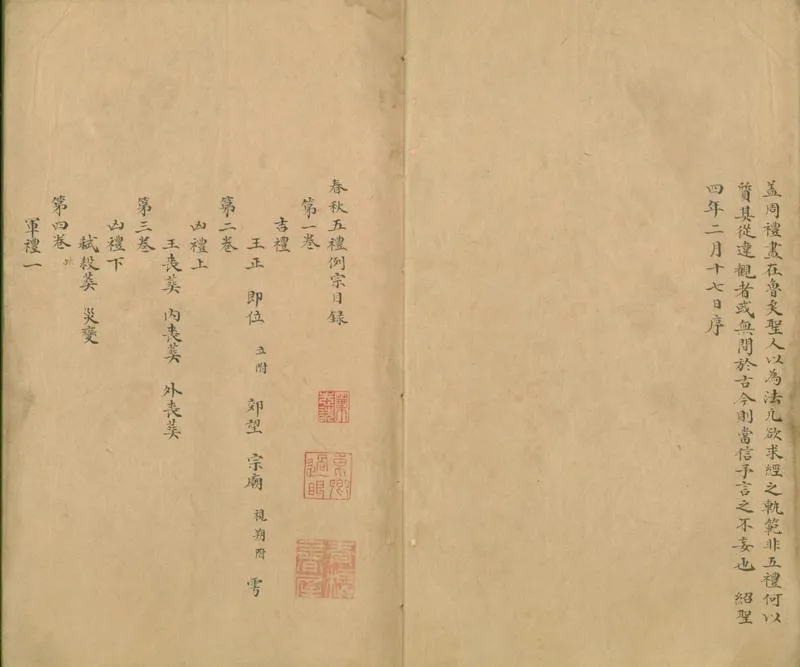 盖周禮盡在魯矣聖人以為法凡欲求經之軌範非五禮何以
質其從違觀者或無間於古今則當信予言之不妄也 紹聖
四年二月十七日序
春秋五禮例宗目録
第一卷
吉禮
王正 即位 立附 郊望 宗廟 視朔附 雩
第二卷
凶禮上
王喪葬 内喪葬 外喪葬
第三卷
凶禮下
弑殺葬 災變
第四卷
軍禮一